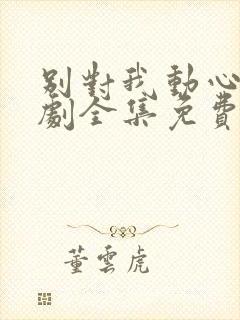 別對我動心
劇全集免費
董雲虎